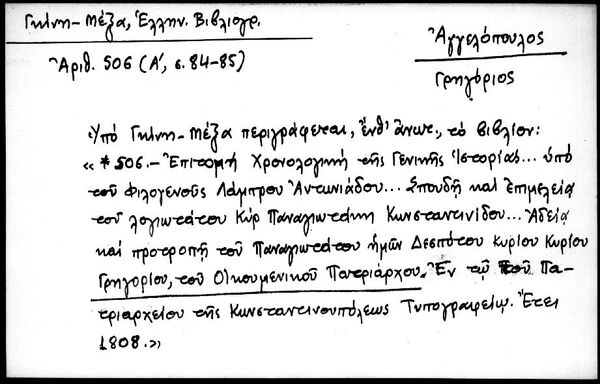 Γκίνη - Μέξα, Ἑλλην. Βιβλιογρ.
Ἀριθ. 506 (Α΄, σ. 84-85)
Ἀγγελόπουλος
Γρηγόριος
Ὑπό Γκίνη - Μέξα περιγράφεται, ἔνθ' ἄνωτ., τὸ βιβλίον:
« * 506. - Ἐπιτομή Χρονολογική τῆς Γενικῆς Ἱστορίας... ὑπό
τοῦ Φιλογενοῦς Λάμπρου Ἀντωνιάδου... Σπουδῇ καί ἐπιμελείᾳ
τοῦ λογιωτάτου Κύρ Παναγιωτάκη Κωνσταντινίδου... Ἀδείᾳ
καί προτροπῇ τοῦ Παναγιωτάτου ἡμῶν Δεσπότου Κυρίου Κυρίου
Γρηγορίου, τοῦ Οἰκουμενικοῦ Πατριάρχου. Ἐν τῷ τοῦ Πα-
τριαρχείου τῆς Κωνσταντινουπόλεως Τυπογραφείῳ. Ἔτει
1808.»